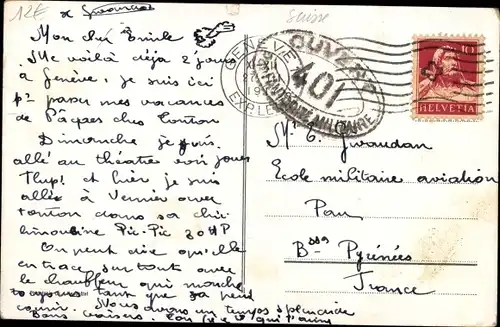 12€
Suisse
Mon cher Emile
Me voilà déjà 2 jours
à Genève, je suis ici
pr passer mes vacances
de Pâques chez Tonton
Dimanche je suis
allé au théâtre voir jouer
et hier je suis
allée à Vernier avec
tonton dans sa
limousine Pic-Pic 30 HP
On peut dire qu'elle
en trace surtout avec
le chauffeur qui marche
toujours tant que ça peut
Nous avons un temps splendide
Bons baisers
GENÈVE
EXP. LE
OUVERT
401
MILITAIRE
10
HELVETIA
Mr E. Giraudan
Ecole militaire aviation
Pau
Bsses Pyrénées
France